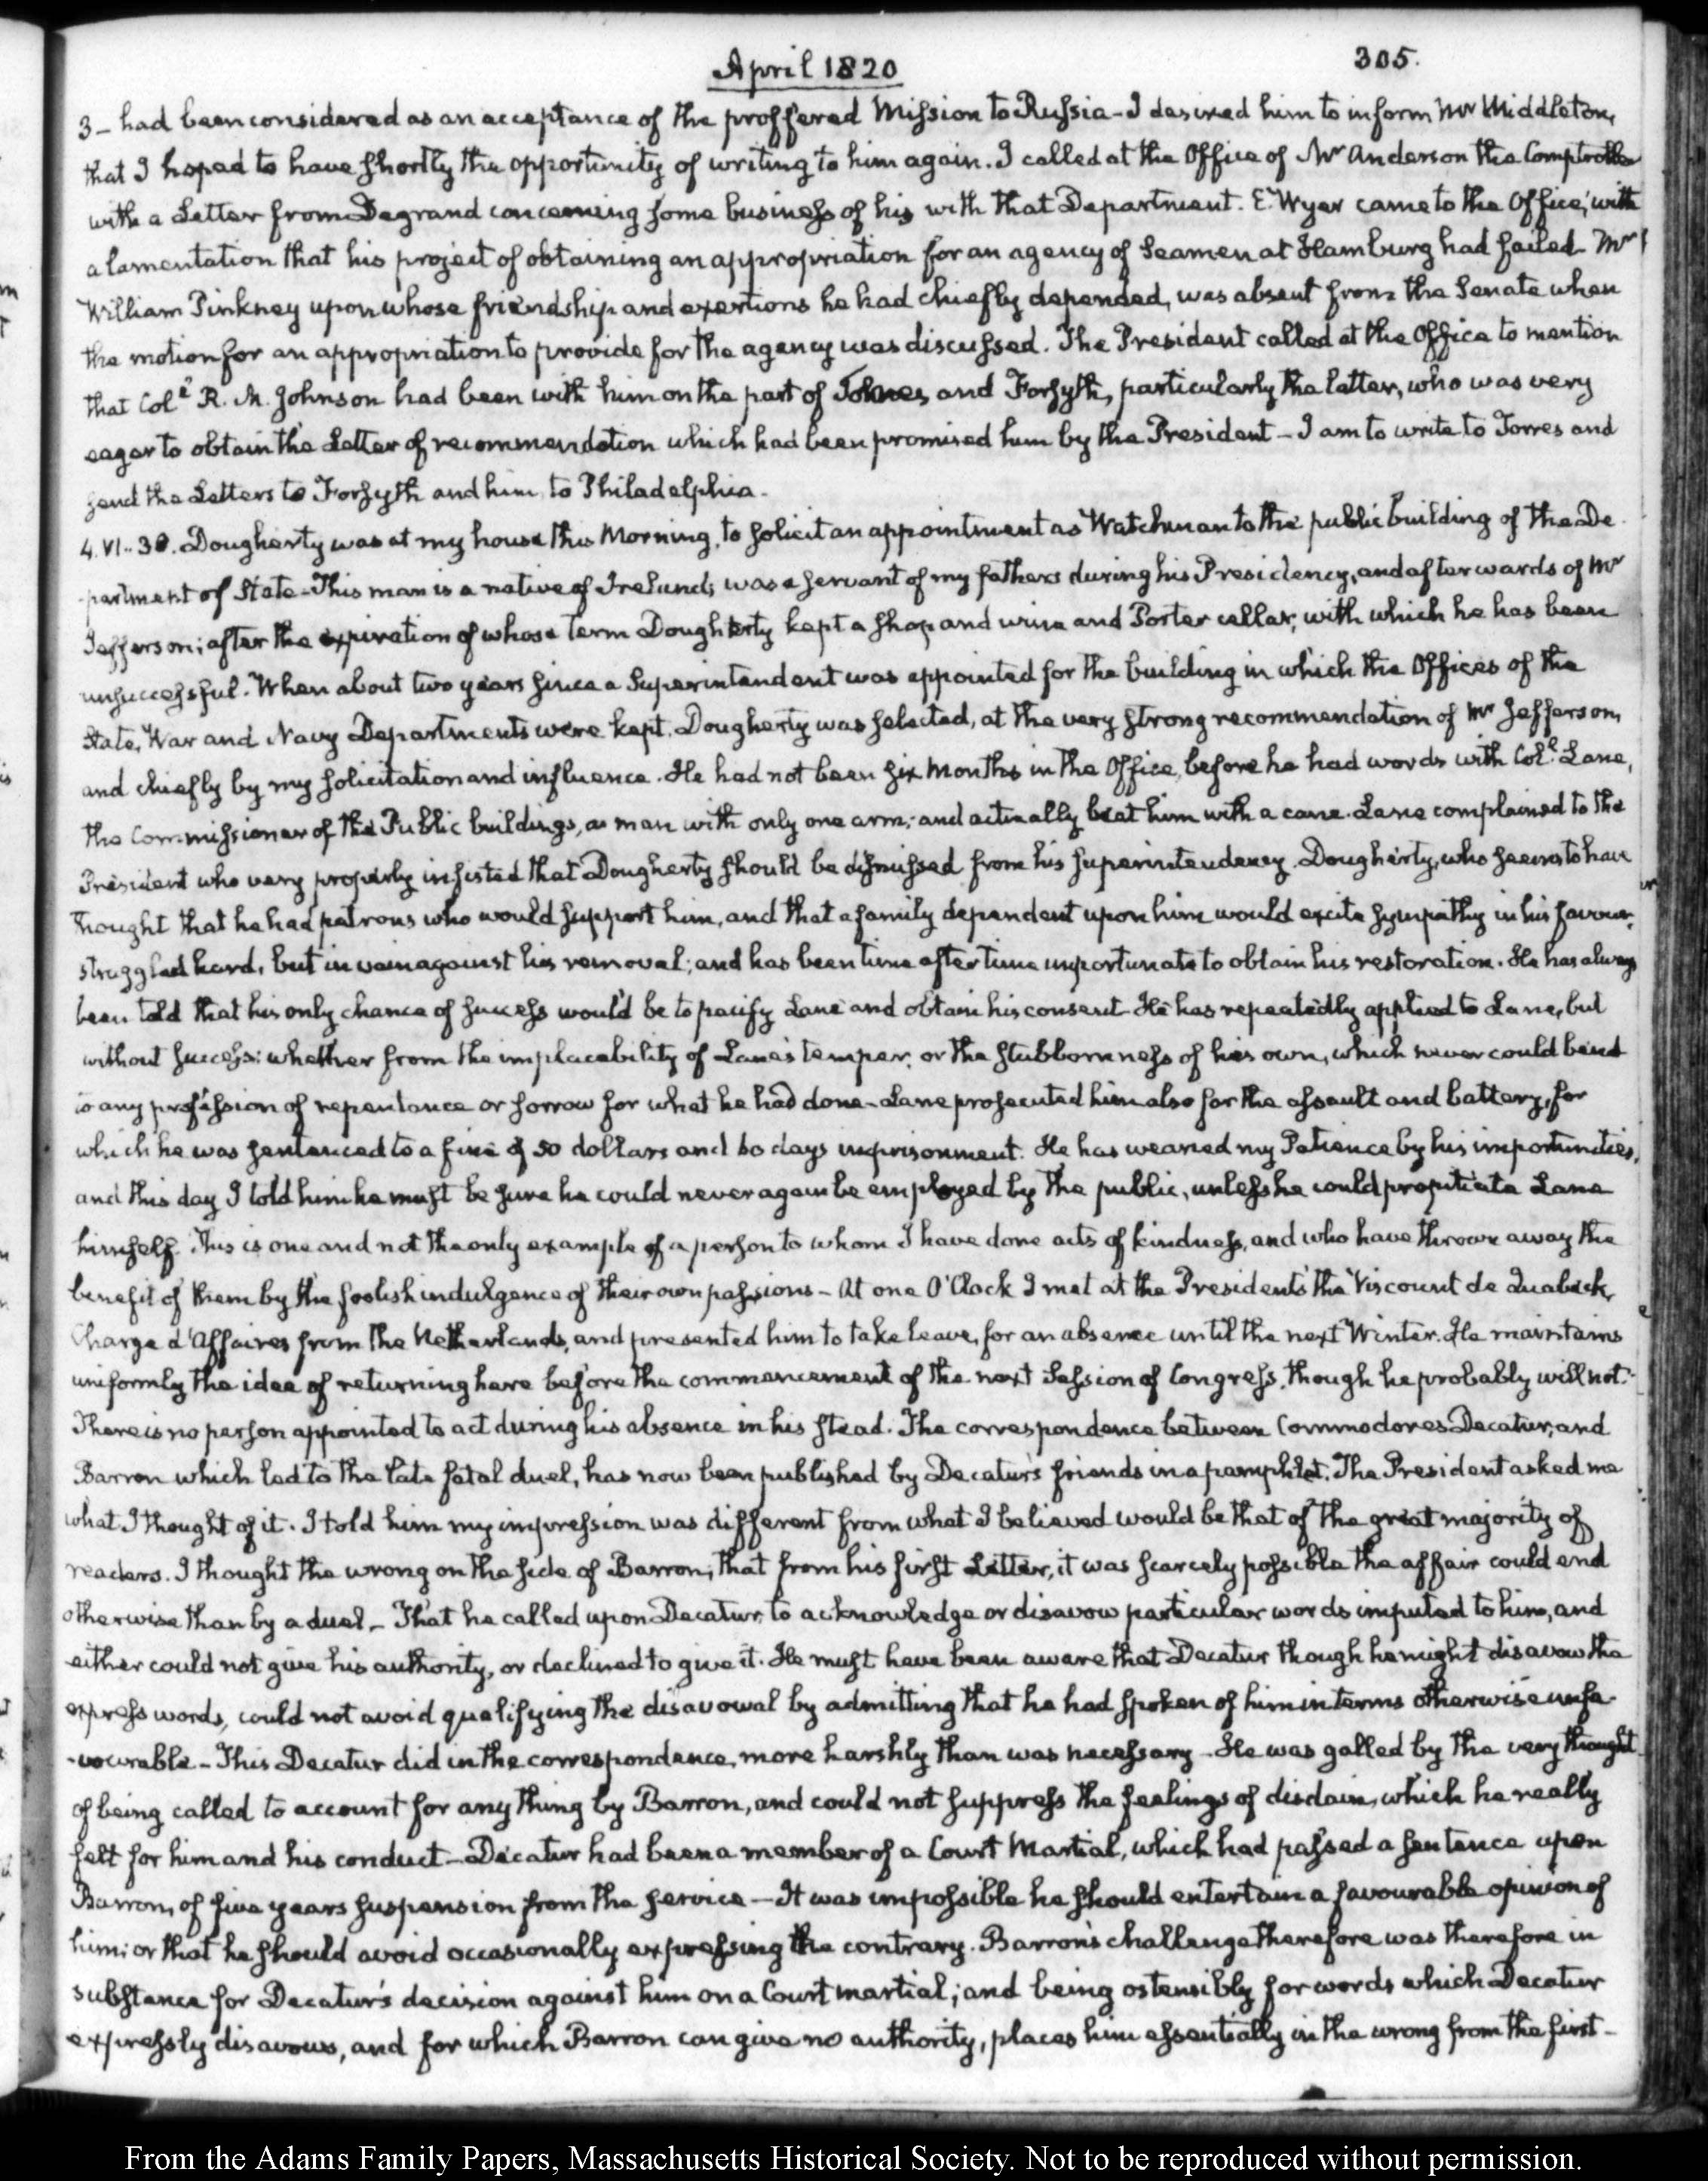 April 1820
305.
3 - had been considered as an acceptance of the proffered Mission to Russia - I desired him to inform Mr Middleton,
that I hoped to have shortly the opportunity of writing to him again. I called at the Office of Mr Anderson the Comptroller
with a Letter from Degrand concerning some business of his with that Department. E. Wyer came to the Office, with
a lamentation that his project of obtaining an appropriation for an agency of Seamen at Hamburg had failed Mr
William Pinkney upon whose friendship and exertions he had chiefly depended, was absent from the Senate when
the motion for an appropriation to provide for the agency was discussed. The President called at the Office to mention
that Coll R. M. Johnson had been with him on the part of and Forsyth, particularly the latter, who was very
eager to obtain the Letter of recommendation which had been promised him by the President - I am to write to Torres and
send the Letters to Forsyth and him to Philadelphia.
4. VI.. 30. Dougherty was at my house this Morning, to solicit an appointment as Watchman to the public building of the De
partment of State - This man is a native of Ireland; was a servant of my fathers during his Presidency, and afterwards of Mr
Jefferson; after the expiration of whose term Dougherty kept a shop and wine and Porter cellar, with which he has been
unsuccessful. When about two years since a Superintendent was appointed for the building in which the Offices of the
State, War and Navy Departments were kept, Dougherty was selected, at the very strong recommendation of Mr Jefferson,
and chiefly by my solicitation and influence. He had not been six Months in the Office, before he had words with Coll. Lane,
the Commissioner of the Public buildings, a man with only one arm; and actually beat him with a cane. Lane complained to the
President who very properly insisted that Dougherty should be dismissed from his Superintendency. Dougherty, who seems to have
thought that he had patrons who would support him, and that a family dependent upon him would excite sympathy in his favour,
struggled hard, but in vain against his removal; and has been time after time importunate to obtain his restoration. He has always
been told that his only chance of success would be to pacify Lane and obtain his consent. He has repeatedly applied to Lane, but
without success: whether from the implacability of Lane's temper, or the stubbornness of his own, which never could bend
to any profession of repentance or sorrow for what he had done - Lane prosecuted him also for the assault and battery, for
which he was sentenced to a fine of 50 dollars and 60 days imprisonment. He has wearied my Patience by his importunities,
and this day I told him he must be sure he could never again be employed by the public, unless he could propitiate Lane
himself. This is one and not the only example of a person to whom I have done acts of kindness, and who have thrown away the
benefit of them by the foolish indulgence of their own passions - At one O'Clock I met at the President's the Viscount de Quabeck,
Charge d'Affaires from the Netherlands, and presented him to take leave, for an absence until the next Winter. He maintains
uniformly the idea of returning here before the commencement of the next Session of Congress, though he probably will not.
There is no person appointed to act during his absence in his stead. The correspondence between Commodores Decatur, and
Barron which led to the late fatal duel, has now been published by Decatur's friends in a pamphlet. The President asked me
what I thought of it. I told him my impression was different from what I believed would be that of the great majority of
readers. I thought the wrong on the side of Barron; that from his first Letter, it was scarcely possible the affair could end
otherwise than by a duel. - That he called upon Decatur, to acknowledge or disavow particular words imputed to him, and
either could not give his authority, or declined to give it. He must have been aware that Decatur though he might disavow the
express words, could not avoid qualifying the disavowal by admitting that he had spoken of him in terms otherwise unfa-
-vourable - This Decatur did in the correspondence, more harshly than was necessary - He was galled by the very thought
of being called to account for any thing by Barron, and could not suppress the feelings of disdain, which he really
felt for him and his conduct - Decatur had been a member of a Court Martial, which had passed a sentence upon
Barron, of five years suspension from the service - It was impossible he should entertain a favourable opinion of
him; or that he should avoid occasionally expressing the contrary. Barron's challenge therefore was therefore in
substance for Decatur's decision against him on a Court martial; and being ostensibly for words which Decatur
expressly disavows, and for which Barron can give no authority, places him essentially in the wrong from the first -
From the Adams Family Papers, Massachusetts Historical Society. Not to be reproduced without permission.